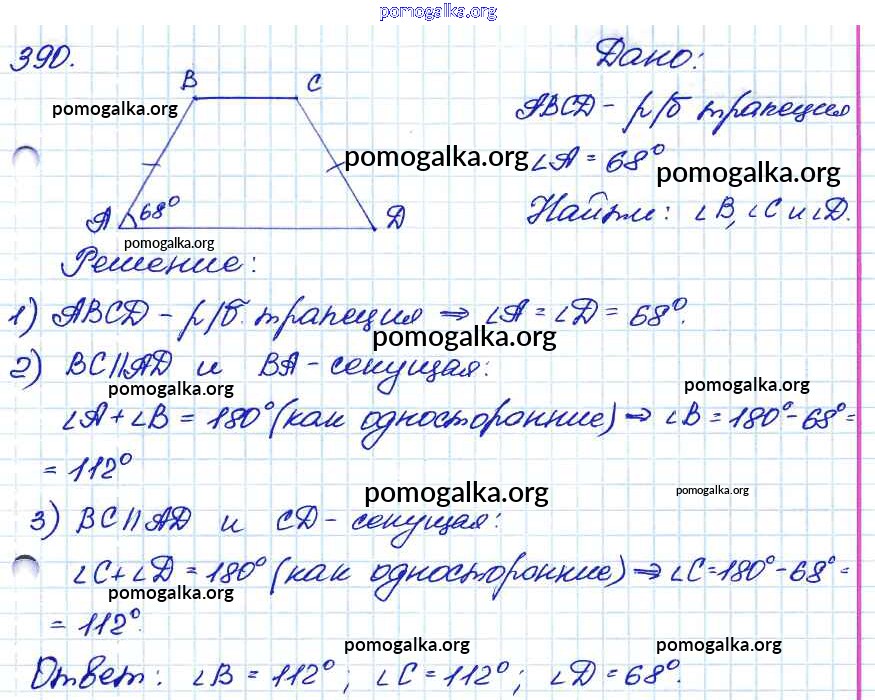 pomogalka.org
390.
Дано:
B C
pomogalka.org
ABCD - р/б трапеция
pomogalka.org
∠A = 68°
pomogalka.org
A 68° D
Найти: ∠B, ∠C и ∠D.
pomogalka.org
Решение:
1) ABCD - р/б. трапеция ⇒ ∠A = ∠D = 68°.
pomogalka.org
2) BC||AD и BA - секущая:
pomogalka.org pomogalka.org
∠A + ∠B = 180° (как односторонние) ⇒ ∠B = 180° - 68° =
= 112°
pomogalka.org pomogalka.org
3) BC||AD и CD - секущая:
∠C + ∠D = 180° (как односторонние) ⇒ ∠C = 180° - 68° =
pomogalka.org
= 112°.
pomogalka.org pomogalka.org
Ответ: ∠B = 112°; ∠C = 112°; ∠D = 68°.